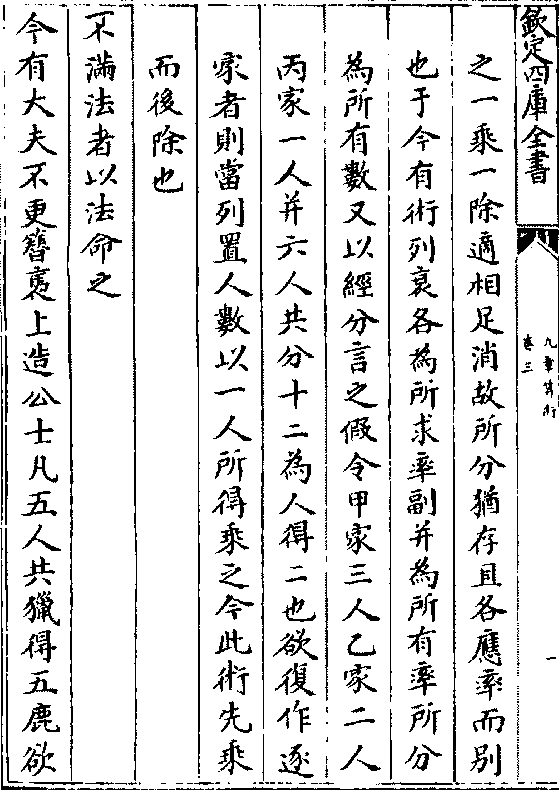 欽定四庫全書
九章算術
卷三
一
之一乘一除適相足消故所分猶存且各應率而别
也于今有術列衰各為所求率副并為所有率所分
為所有數又以經分言之假令甲家三人乙家二人
丙家一人并六人共分十二為人得二也欲復作逐
家者則當列置人數以一人所得乘之今此術先乘
而後除也
不滿法者以法命之
今有大夫不更簪褭上造公士凡五人共獵得五鹿欲